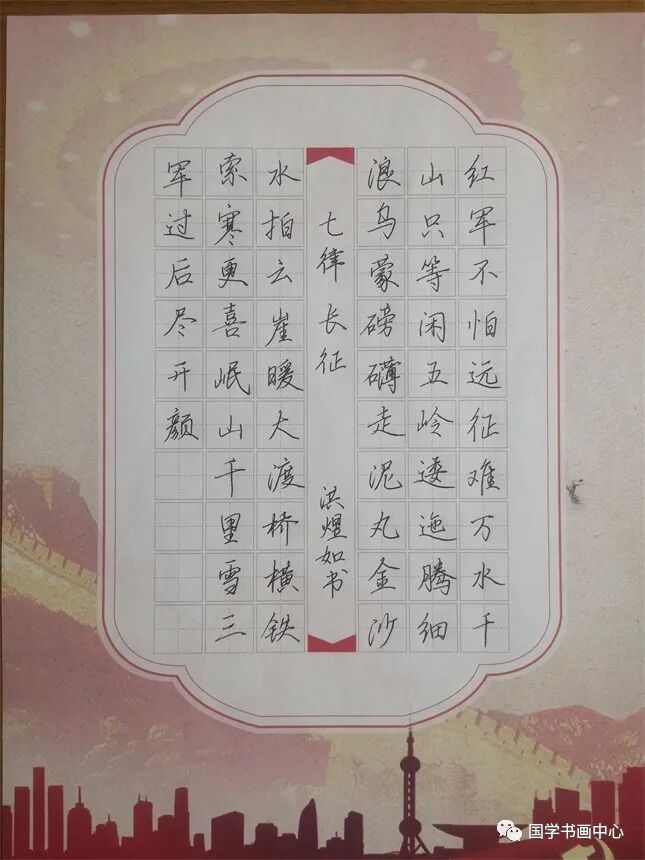 红军不怕远征难万水千
山只等闲五岭逶迤腾细
浪乌蒙磅礴走泥丸金沙
七律 长征 洪煜如书
水拍云崖暖大渡桥横铁
索寒更喜岷山千里雪三
军过后尽开颜
国学书画中心